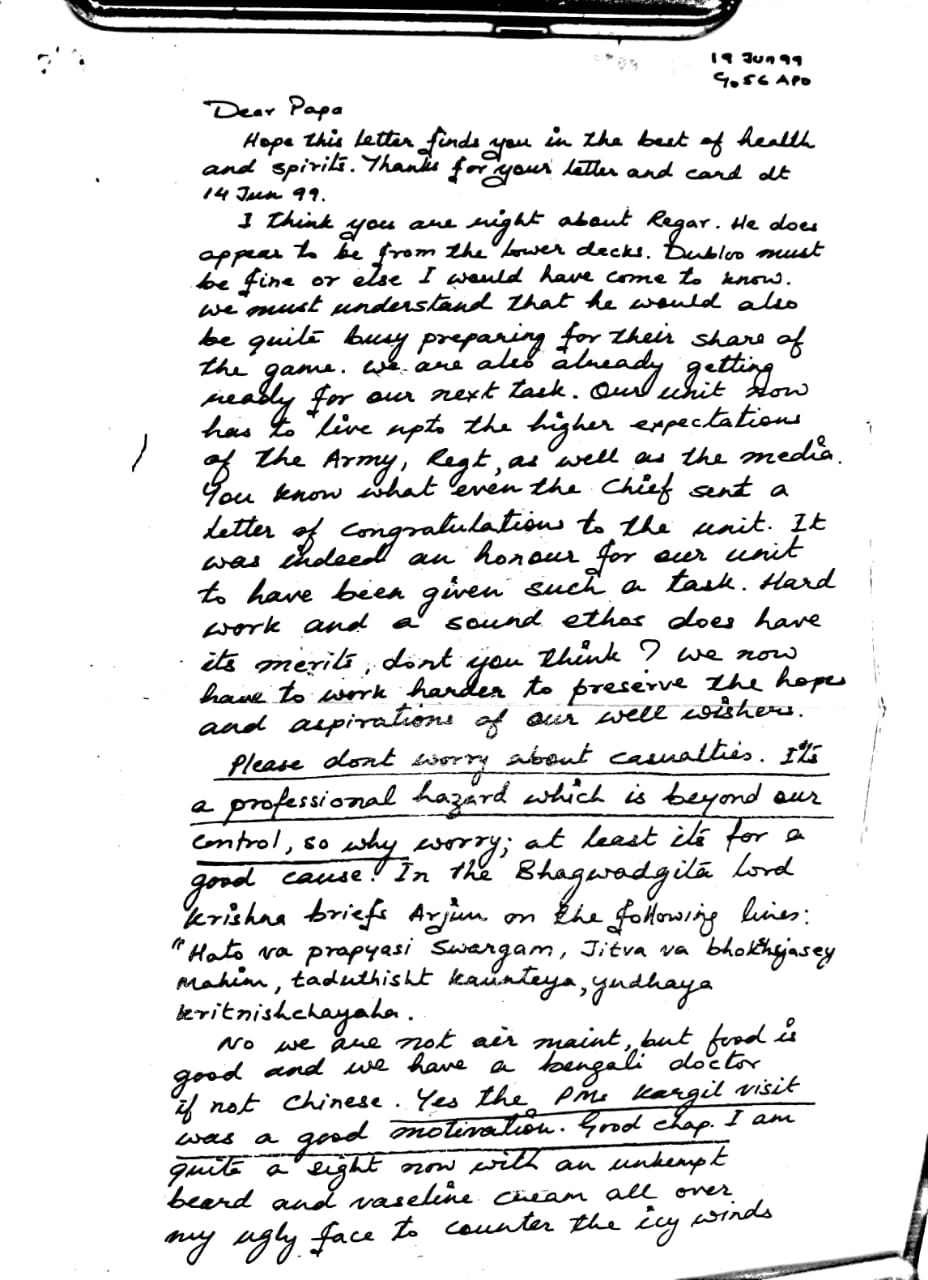 19 Jun 99
C/o 56 APO
Dear Papa
Hope this letter finds you in the best of health
and spirits. Thanks for your letter and card dt
14 Jun 99.
I think you are right about Regar. He does
appear to be from the lower decks. Dubloo must
be fine or else I would have come to know.
we must understand that he would also
be quite busy preparing for their share of
the game. we are also already getting
ready for our next task. Our unit now
has to live upto the higher expectations
of the Army, Regt, as well as the media.
You know what even the Chief sent a
letter of congratulations to the unit. It
was indeed an honour for our unit
to have been given such a task. Hard
work and a sound ethos does have
its merits, dont you think? We now
have to work harder to preserve the hopes
and aspirations of our well wishers.
Please dont worry about casualties. It's
a professional hazard which is beyond our
control, so why worry; at least its for a
good cause. In the Bhagwadgita Lord
Krishna briefs Arjun on the following lines:
"Hato va prapyasi Swargam, Jitva va bhokhsjasey
Mahim, taduthisht Kaunteya, yudhaya
kritnishchayaha.
No we are not air maint, but food is
good and we have a bengali doctor
if not Chinese. Yes the PMs Kargil visit
was a good motivation. Good chap. I am
quite a sight now with an unkempt
beard and vaseline cream all over
my ugly face to counter the icy winds